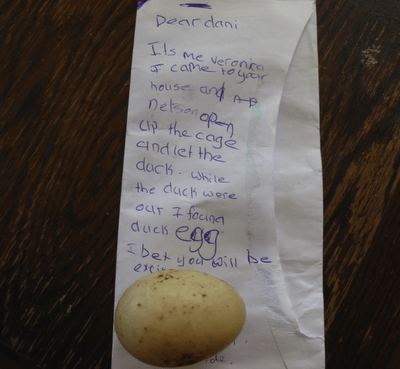 Dear dani
Its me veronica
I came to your
house and
nelson open
up the cage
and let the
duck. while
the duck were
out I found
duck egg
I bet you will be